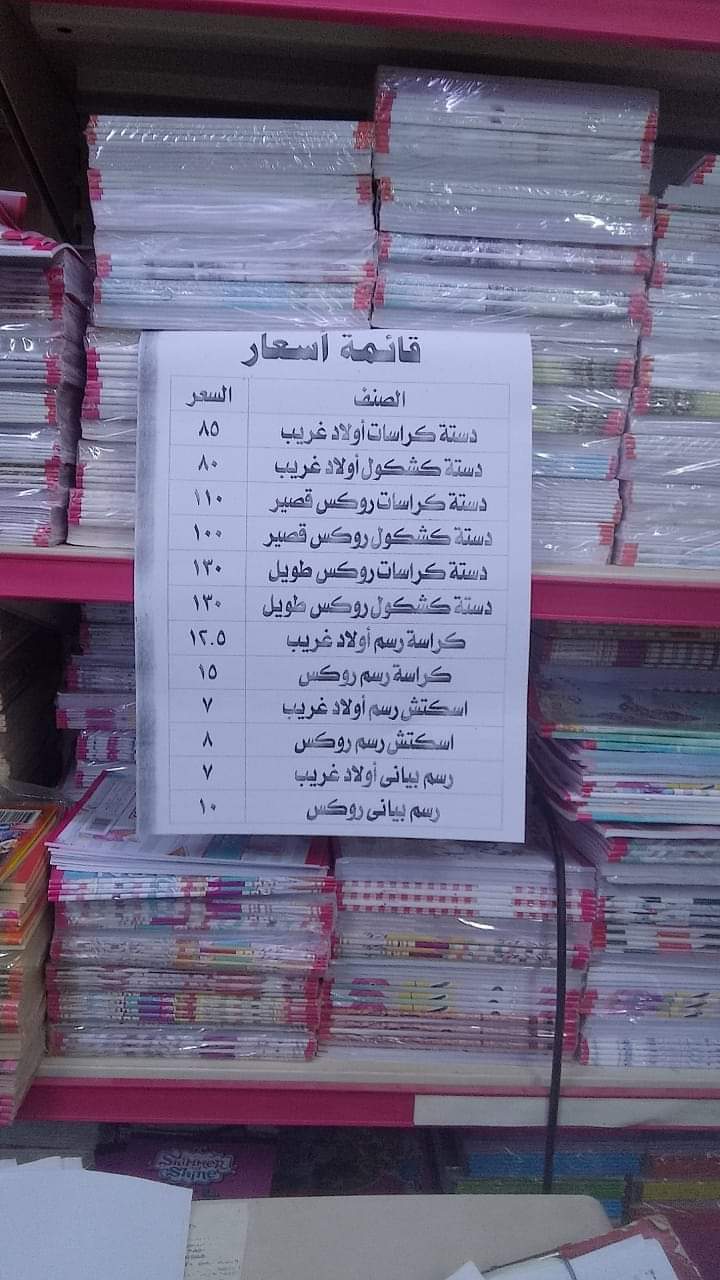 قائمة أسعار
الصنف السعر
دستة كراسات أولاد غريب ٨٥
دستة كشكول أولاد غريب ٨٠
دستة كراسات روكس قصير ١١٠
دستة كشكول روكس قصير ١٠٠
دستة كراسات روكس طويل ١٣٠
دستة كشكول روكس طويل ١٣٠
كراسة رسم أولاد غريب ١٢.٥
كراسة رسم روكس ١٥
اسكتش رسم أولاد غريب ٧
اسكتش رسم روكس ٨
رسم بيانى أولاد غريب ٧
رسم بيانى روكس ١٠
Shimmer
Shine